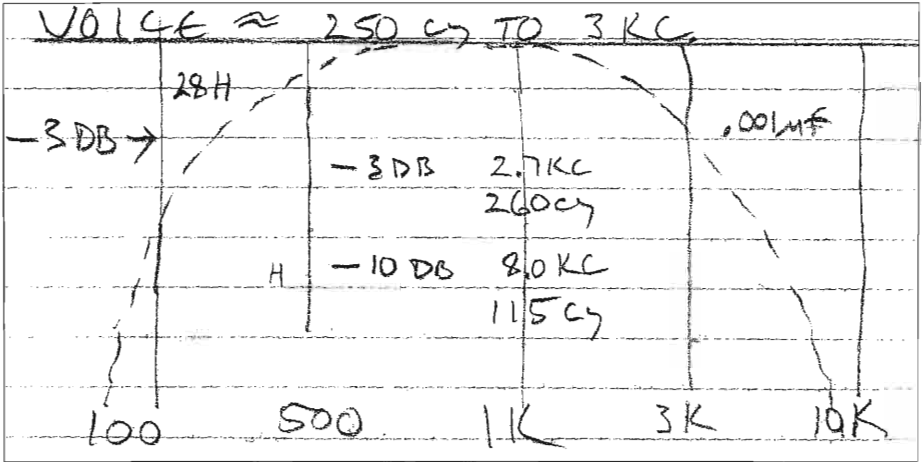 VOICE ≈ 250 Cy TO 3 KC.
28H
-3 DB →
.001µF
-3 DB 2.7KC
260cy
H -10 DB 8.0 KC
115 Cy
100 500 1K 3K 10K